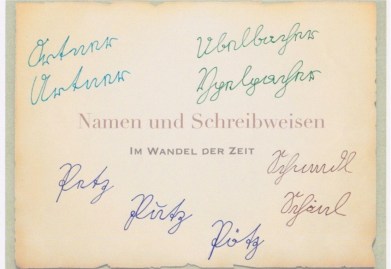 Ortner
Artner
Übelbacher
Yppelpacher
Namen und Schreibweisen
IM WANDEL DER ZEIT
Petz
Pütz
Pötz
Schmidl